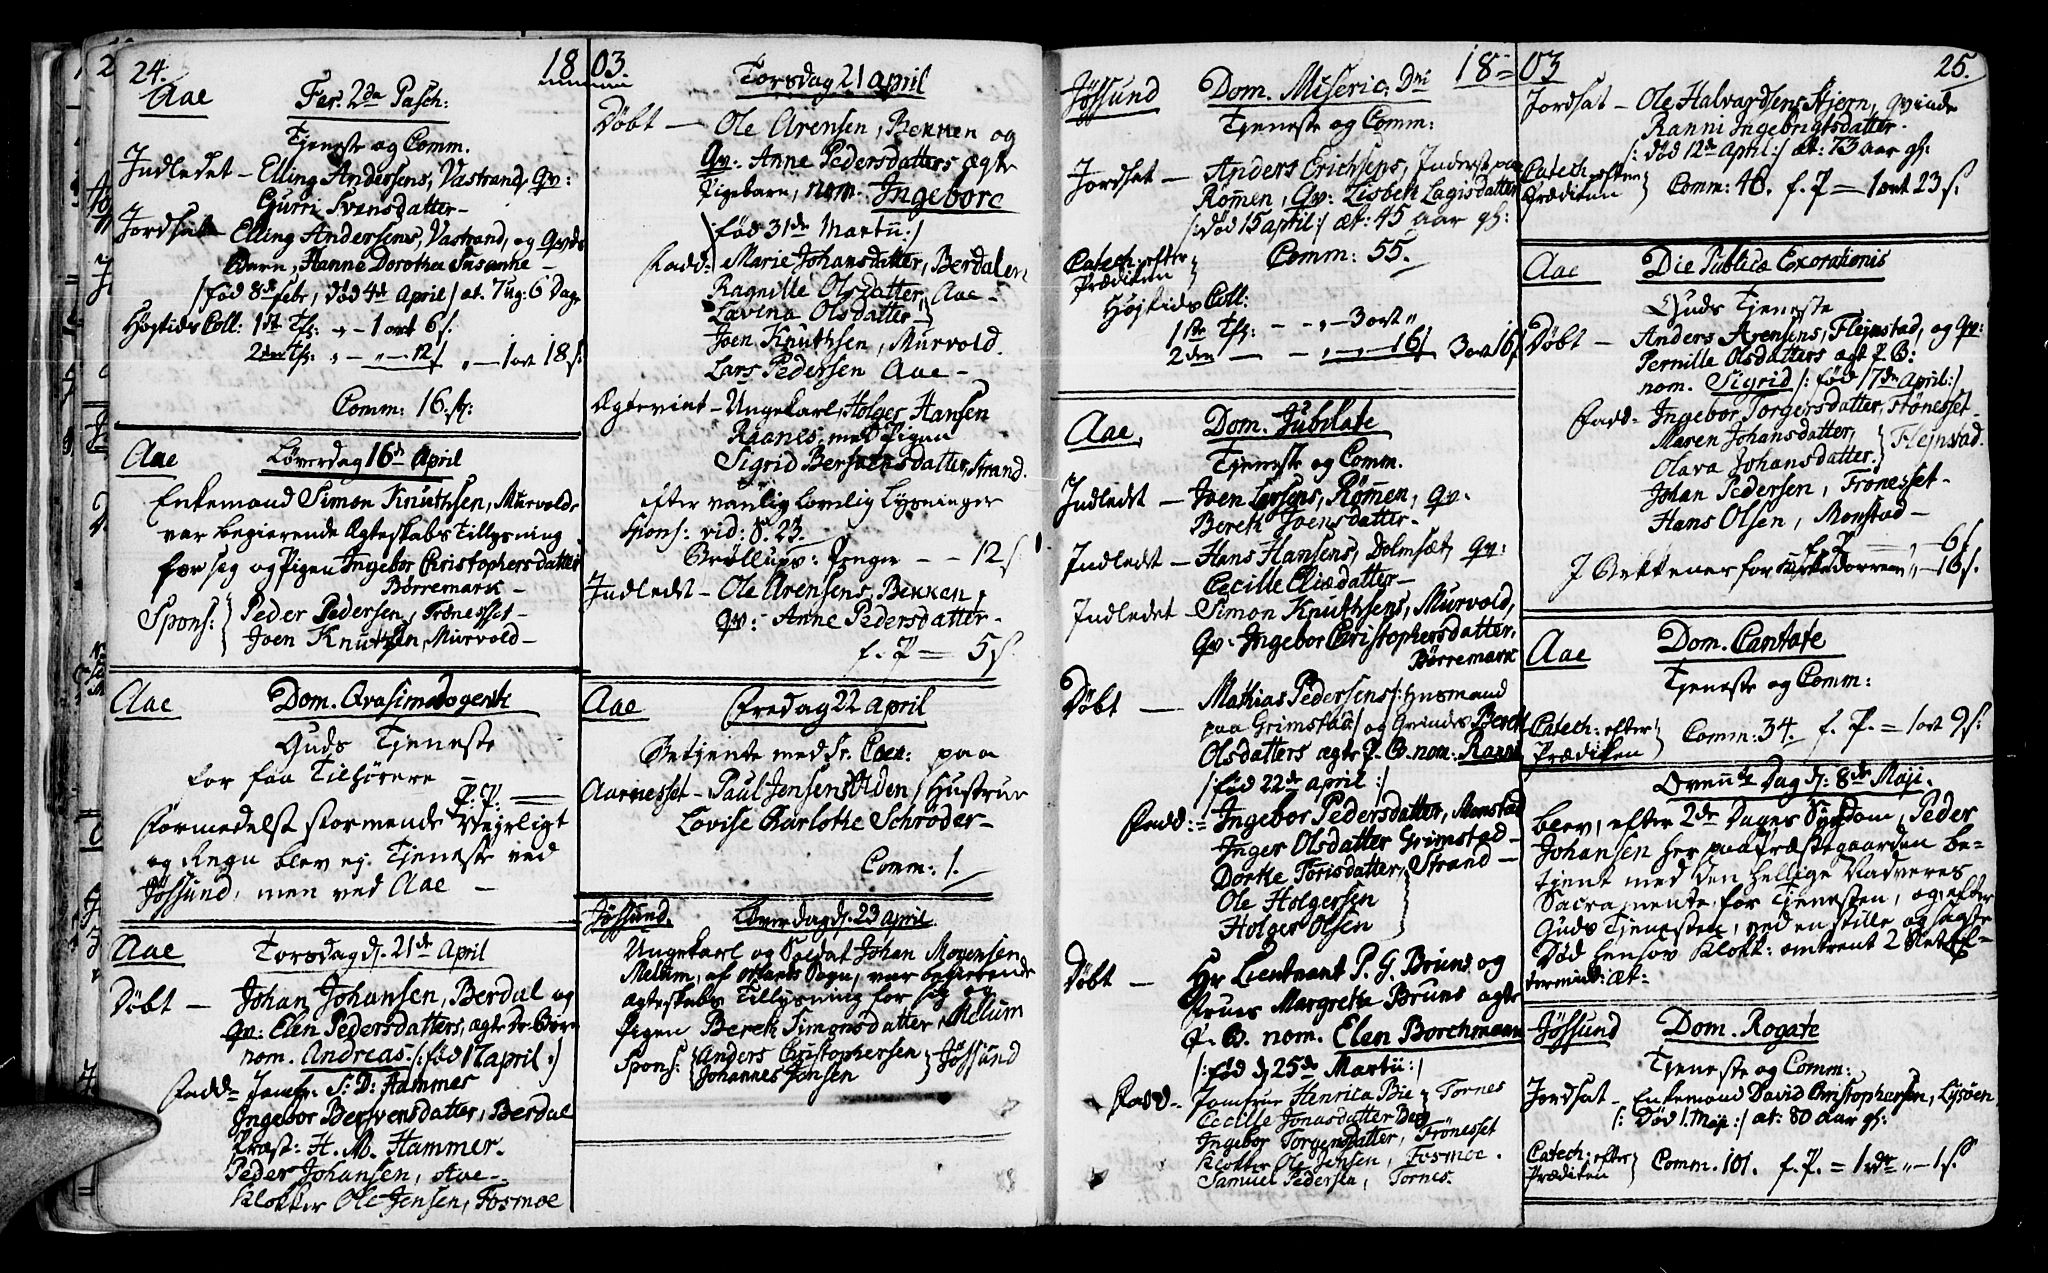 24.
18 03.
Aae Fer. 2da Pasch:
Tjeneste og Comm.
Indledet - Elling Andersens, Vastrand, Qv:
Gurri Svensdatter -
Jordsat - Elling Andersens, Vastrand, og Qvds
Barn, Hanne Dorothea Susanne -
/født 8de febr, død 4de April/ æt. 7 ug: 6 Dage
Høytids Coll: 1ste Tfl: „ - 1 ort 6 s.
2den Tfl: „ - „ - 12 s „ - 1 ort 18 s.
Comm: 16.
Aae Løverdag 16de April
Enkemand Simon Knuthsen, Murvold,
var begierende Ægteskabs Tillysning
for sig og Pigen Ingebor Christophersdatter
Børremark -
Spons: Peder Pedersen, Frønesset -
Joen Knutsen, Murvold -
Aae Dom. Qvasimodogenit:
Guds Tjeneste
for faa Tilhørere
f: P: =
Formedelst stormende Vejrligt
og Regn blev ej Tjeneste ved
Jøssund, men ved Aae -
Aae Torsdag d. 21de April
Døbt - Johan Johansen, Berdal og
Qv: Elen Pedersdatters, ægte Dr: Barn
nom. Andreas - /: fød 17 april :/
Fadd = Jomfr. S: D: Hammer
Ingebor Bersvensdatter, Berdal
Præst: H. M. Hammer.
Peder Johansen, Aae -
Klokker Ole Jensen, Fosmoe
Torsdag 21 april
Døbt - Ole Arensen, Bekken og
Qv: Anne Pedersdatters ægte
Pigebarn, nom. Ingebore
/: fød 31de Martii :/
Fadd: Marie Johansdatter, Berdalen
Ragnille Olsdatter, } Aae -
Lavina Olsdatter }
Joen Knuthsen, Murvold.
Lars Pedersen Aae -
Ægteviet - Ungekarl, Holger Hansen
Raanes, med Pigen
Sigrid Bersvensdatter, Strand.
efter vanlig lovlig Lysninger
Spons: vid: S. 23.
Brøllups: Penger - - 12 s.
Indledt - Ole Arensens, Bekken,
Qv: - Anne Pedersdatter -
f. P = 5 s.
Aae Fredag 22 april
Betjente med Sr. Coen: paa
Aarnesset - Paul Jensen Stiden, Hustrue
Lovise Charlothe Schrøder -
Comm: 1.
Jøssund. Løverdag d. 23 april
Ungekarl og Soldat Johan Mogensen
Melum, af Ørlands Sogn, var begierende
Ægteskabs Tillysning for sig og
Pigen Bereth Simonsdatter, Melum
Spons: { Anders Christophersen } Jøssund
Johannes Jensen
18 03
25.
Jøssund Dom. Miseric: Dni
Tjeneste og Comm:
Jordsat - Anders Erichsens, Inderst paa
Rømen, Qv: Lisbeth Lagisdatter
/: død 15 april :/ æt: 45 aar gl:
Catech: efter
Prædiken } Comm: 55.
Højtids Coll:
1ste Tfl: - - „ - 3 ort „
2den - - „ - „ - 16 s 3 ort 16 s
Aae, Dom. Jubilate
Tjeneste og Comm.
Indledt - Joen Larsens, Rømen, Qv:
Bereth Joensdatter -
Indledt - Hans Hansens, Dolmsæt, Qv:
Cecille Eliædatter -
Indledet - Simon Knuthsens, Murvold,
Qv: Ingebor Christophersdatter,
Børremark
Døbt - Mathias Pedersens /: Husmand
paa Grimstad / og Qvindes Bereth
Olsdatters ægte P. B. nom: Ranni
/: fød 22de april :/
Fadd: = Ingebor Pedersdatter, Monstad
Inger Olsdatter Grimstad -
Dorthe Torisdatter, Strand -
Ole Holgersen
Holger Olsen
Døbt - Hr Lieutnant P. G. Bruns og
Frues Margretha Bruns ægte
P. B. nom. Elen Borchmann
/: fød d 25de Martii :/
Fadd - Jomfrue Henrica Bie } Tornes
Cecille Jonasdatter Berg
Ingebor Torgersdatter, Frønesset
Klokker Ole Jensen, Fosmoe.
Samuel Pedersen, Tornes.
Jordsat - Ole Halvardsens Stjern, qvinde
Ranni Ingebrigtsdatter.
/: død 12de April :/ æt: 73 aar gl:
Catech: efter
Prædiken } Comm: 48. f. P = 1 ort 23 s.
Aae Die Publicæ Exorationis
Guds Tjeneste
Døbt - Anders Arensens, Flejmstad, og qv:
Pernille Olsdatters ægt P. B:
nom. Sigrid /: fød 17de April :/
Fadd - Ingebor Torgersdatter, Frønesset -
Maren Johansdatter, } Flejmstad.
Olava Johansdatter.
Johan Pedersen, Frønesset -
Hans Olsen, Monstad -
f. P = „ 6 s
I Bekkener for Kirkedørren „ - 16 s.
Aae Dom. Cantate
Tjeneste og Comm:
Catech: efter
Prædiken } Comm: 34. f. P. = 1 ort 9 s.
Ovennte Dag d. 8de Maji.
blev, efter 2de Dages Sygdom, Peder
Johansen her paa Præstegaarden be=
tjent med den hellige Nadveres
Sacramente for Tjenesten, og efter
Guds Tjenesten, ved en stille og sagte
Død hensov Klokk: omtrent 2 Slet Ef=
termidd: æt:
Jøssund Dom. Rogate
Tjeneste og Comm:
Jordsat - Enkemand David Christophersen, Lysøen,
/: Død 1. Maji :/ æt: 80 aar gl:
Catech: efter
Prædiken } Comm. 101. f. P. = 1 rdr „ - 1 s.